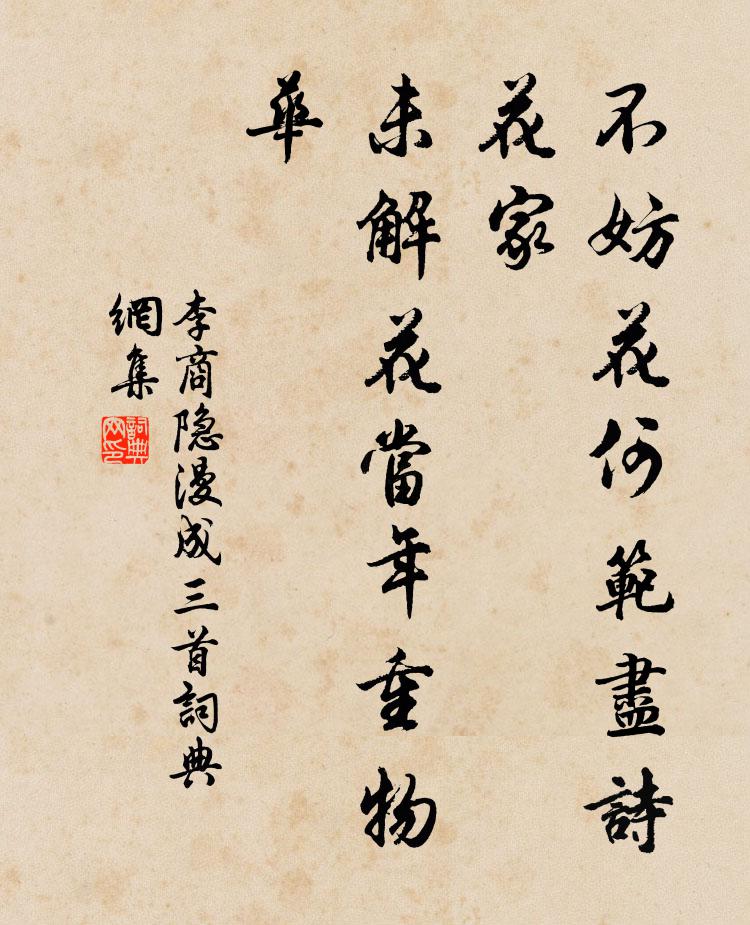 不妨花何範盡詩
花家
未解花當年重物
華
李商隐漫成三首詞典
網集
詞典
网印